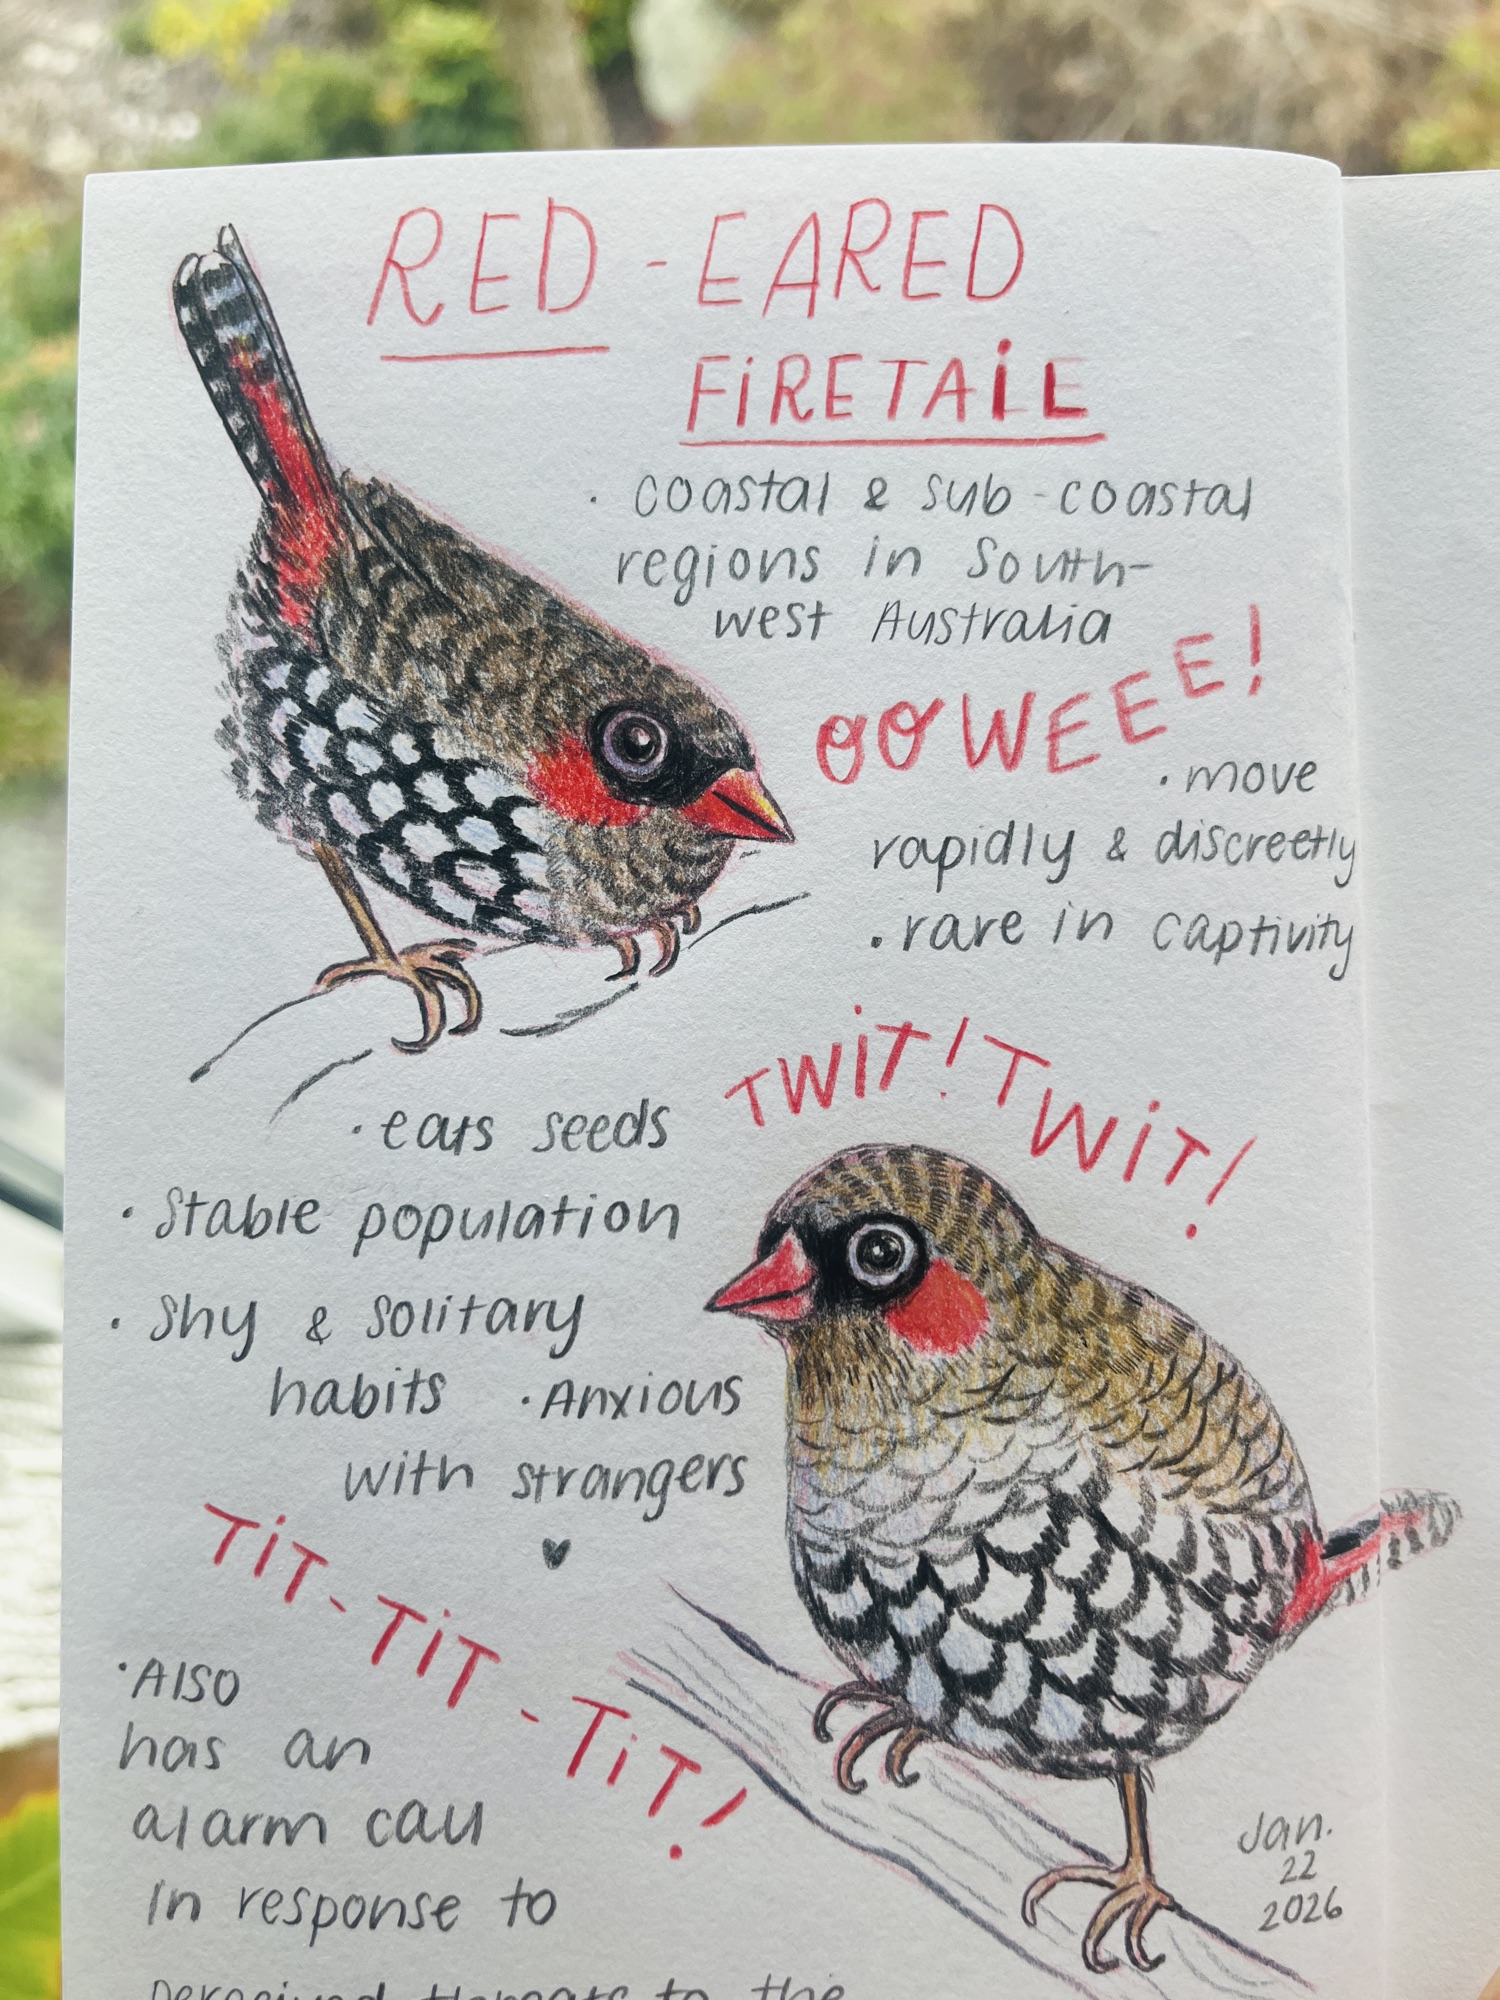 RED - EARED
FiRETAiL
· coastal & sub-coastal
regions in South-
west Australia
OOWEEE!
· move
rapidly & discreetly
· rare in captivity
TWiT! TWiT!
· eats seeds
· Stable population
· Shy & Solitary
habits · Anxious
with strangers
♥
TiT-TiT-TiT!
· Also
has an
alarm call
in response to
perceived threats to the
Jan.
22
2026